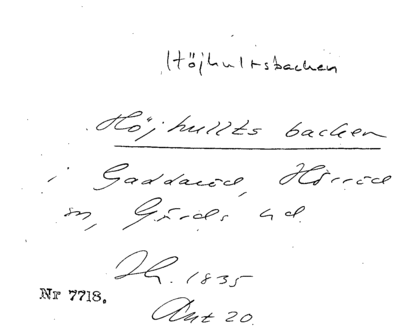 Höjhultsbacken
Höjhullts backen
i Gaddaröd, Hörröd
sn, Gärds hd.
Jh. 1835
Akt 20.
Nr 7718.